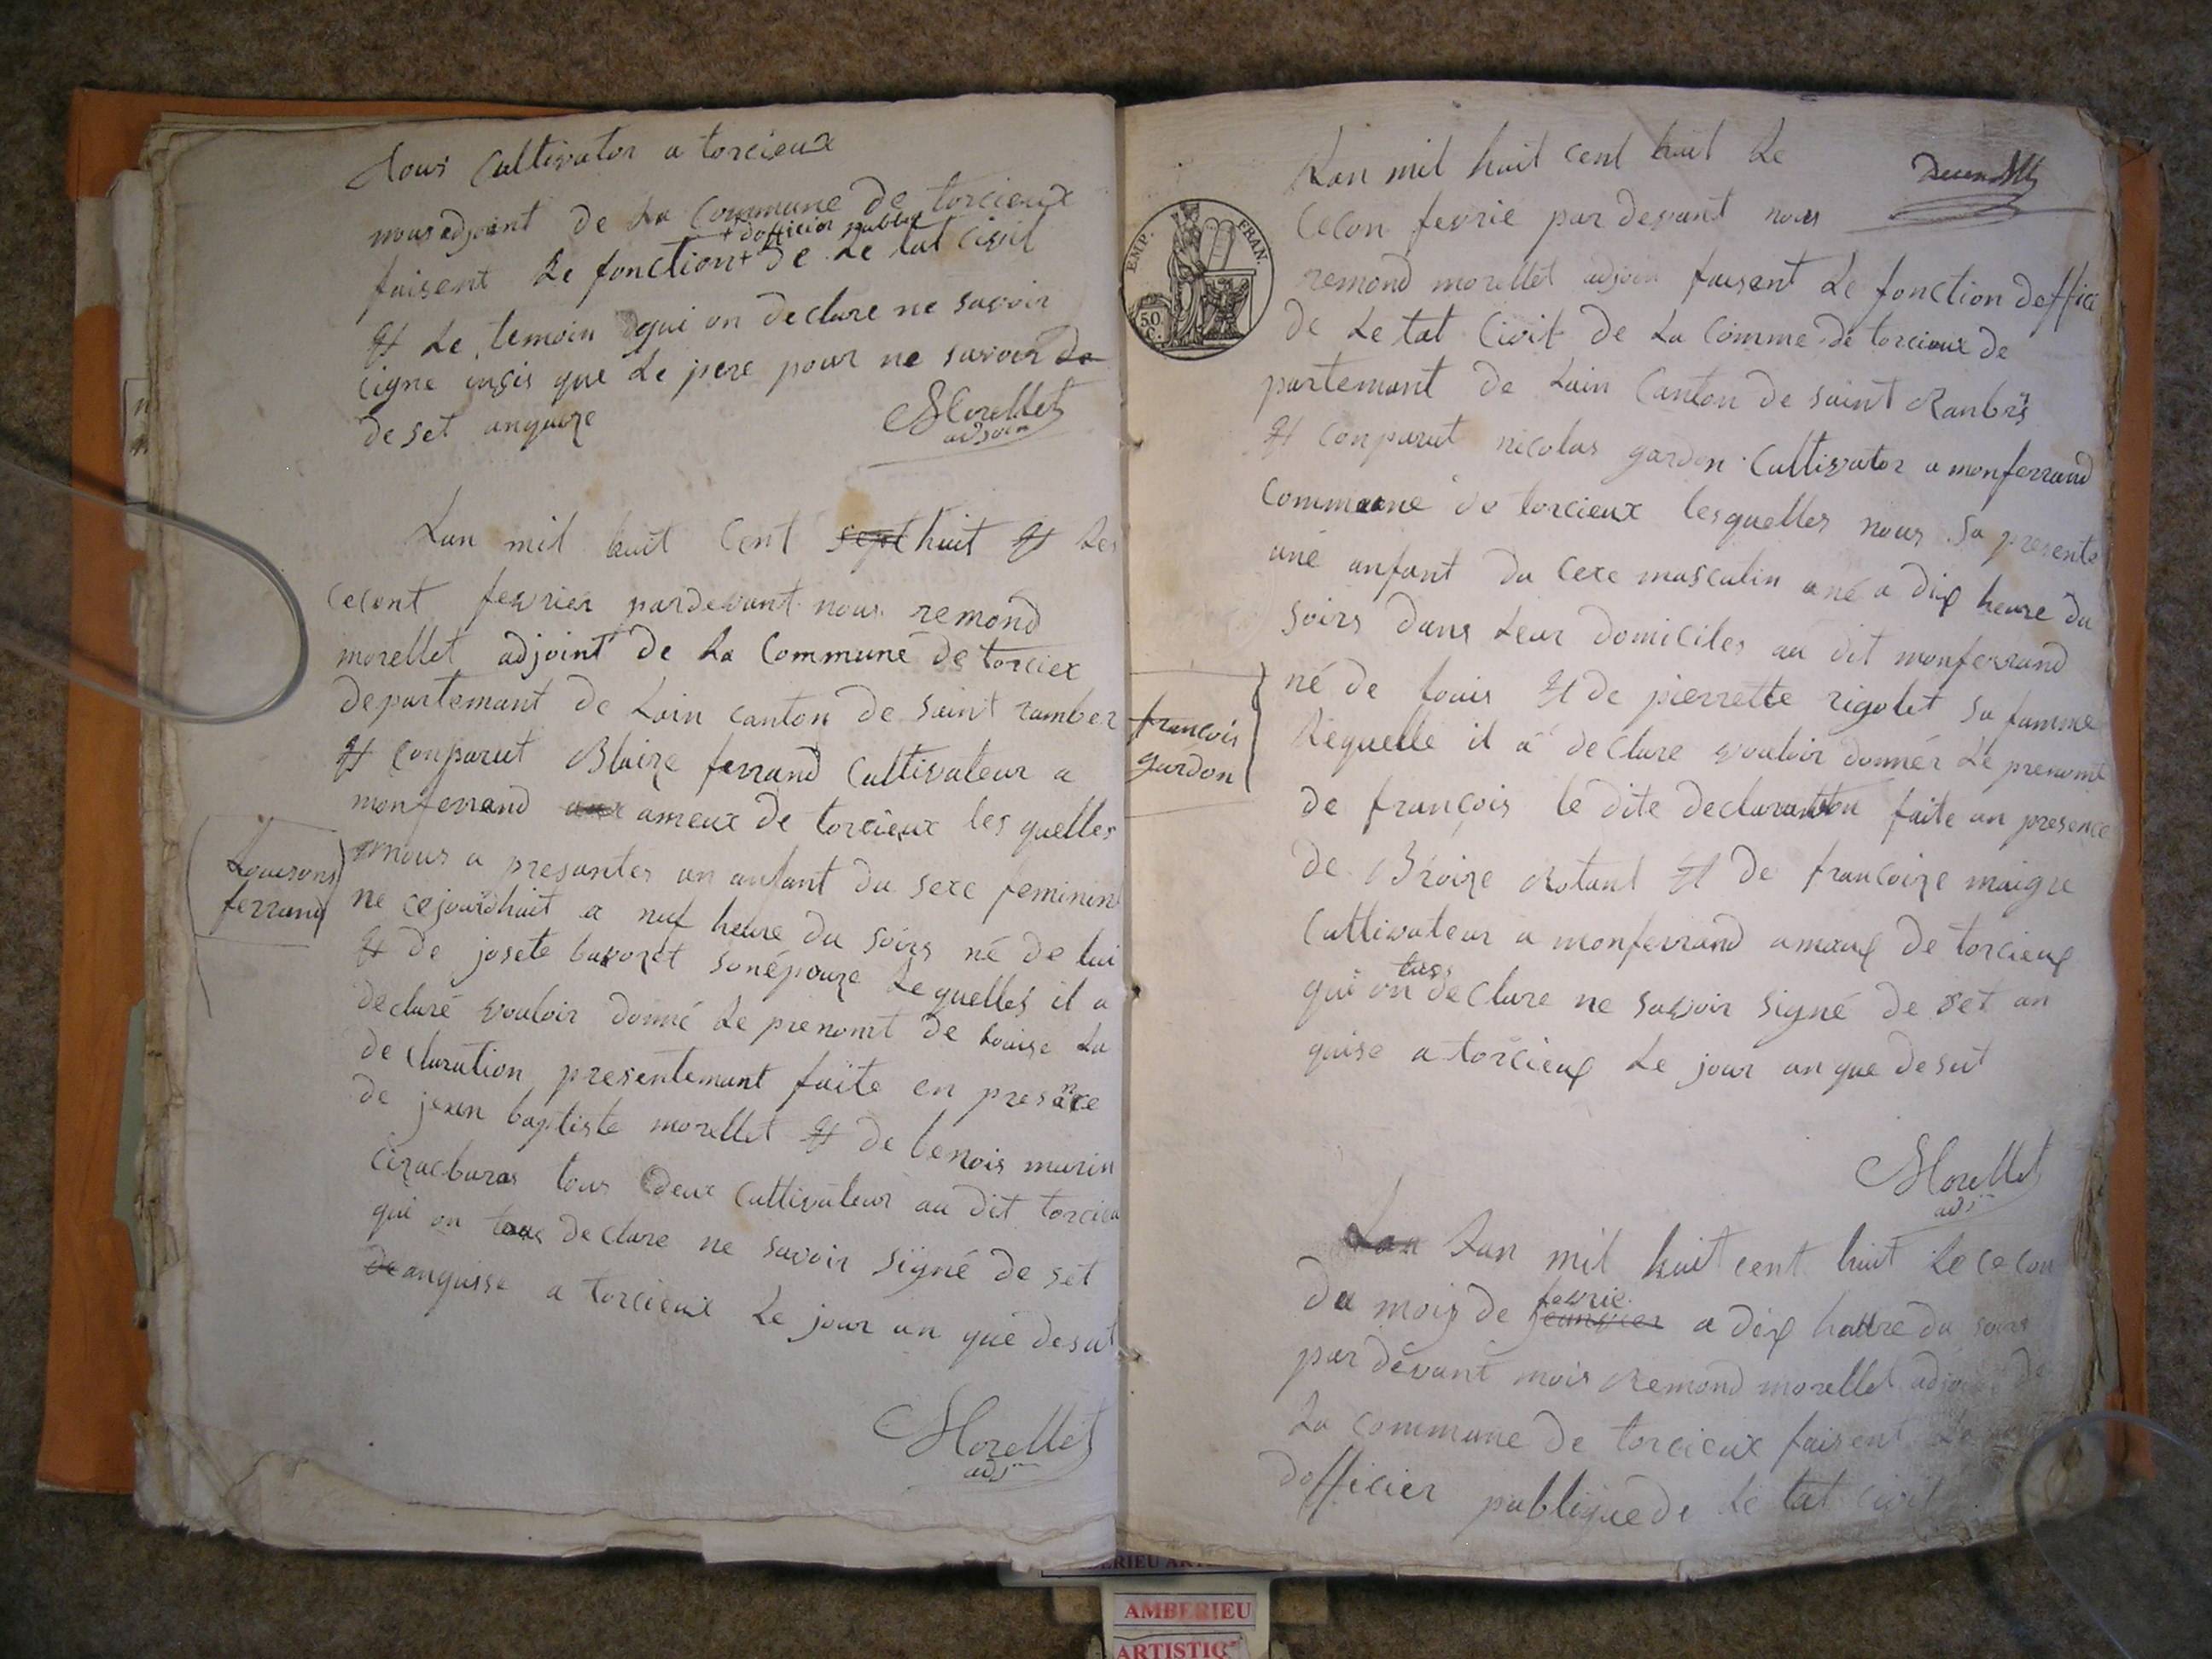 tous Cultivator a torcieux
nous adjoint de La Commune de torcieux
+ dofficier publique
faisent Le fonction + de Le tat Civil
Et Le temoin qui on declare ne savoir
cigne insis que Le pere pour ne savoir
de set anquize
Morellet
adjoin
Lan mil huit Cent sept huit Et Les
cecont fewrier pardevant nous remond
morellet adjoint de La Commune de torciex
departemant de Lain canton de saint ramber
Et Conparut Blaize ferrand Cultivateur a
monferrand ameux de torcieux les quelles
Louisons
ferrand
nous a presanter un anfant du sexe feminin
ne cejourdhuit a neuf heure du soirs né de lui
Et de josete bavozet son épouze Le quelles il a
declaré vouloir donné Le prenomt de Louise La
declaration presentemant faite en presance
de jean baptiste morellet Et de benois marin
tous deux Cultivateur au dit torcieu
qui on tous declare ne savoir signé de set
anguisse a torcieux Le jour an que desut
Morellet
adj
Lan mil huit cent huit Le
cecon fevrie par devant nous
EMP. FRAN.
50.
C.
remond morellet adjoin faisent Le fonction doffici
de Le tat Civit de La Comme de torcieux de
partemant de Lain Canton de saint Ranbrs
Et Conparut nicolas gardon Cultivator a monferrand
Commune de torcieux lesquelles nous sa presente
une anfant du Cexe masculin ané a dix heure du
soirs dans Leur domiciles au dit monferrand
françois
gardon
né de Louis Et de pierrette rigolet sa famme
Lequelle il a declare vouloir donner Le prenomt
de françois le dite declaration faite an presence
de Broize Rotant Et de francoize maigre
Cultivateur a monferrand amaux de torcieux
tous
qui on declare ne savoir signé de set an
guise a torcieux Le jour an que desut
Morellet
adj
Lan Lan mil huit cent huit Le cecon
fevrie
du mois de jeanvier a dix hattre du soirs
par devant mois Remond morellet adjoint de
La commune de torcieux faisent Le
dofficier publique de Le tat civil
AMBERIEU
ARTISTIQ